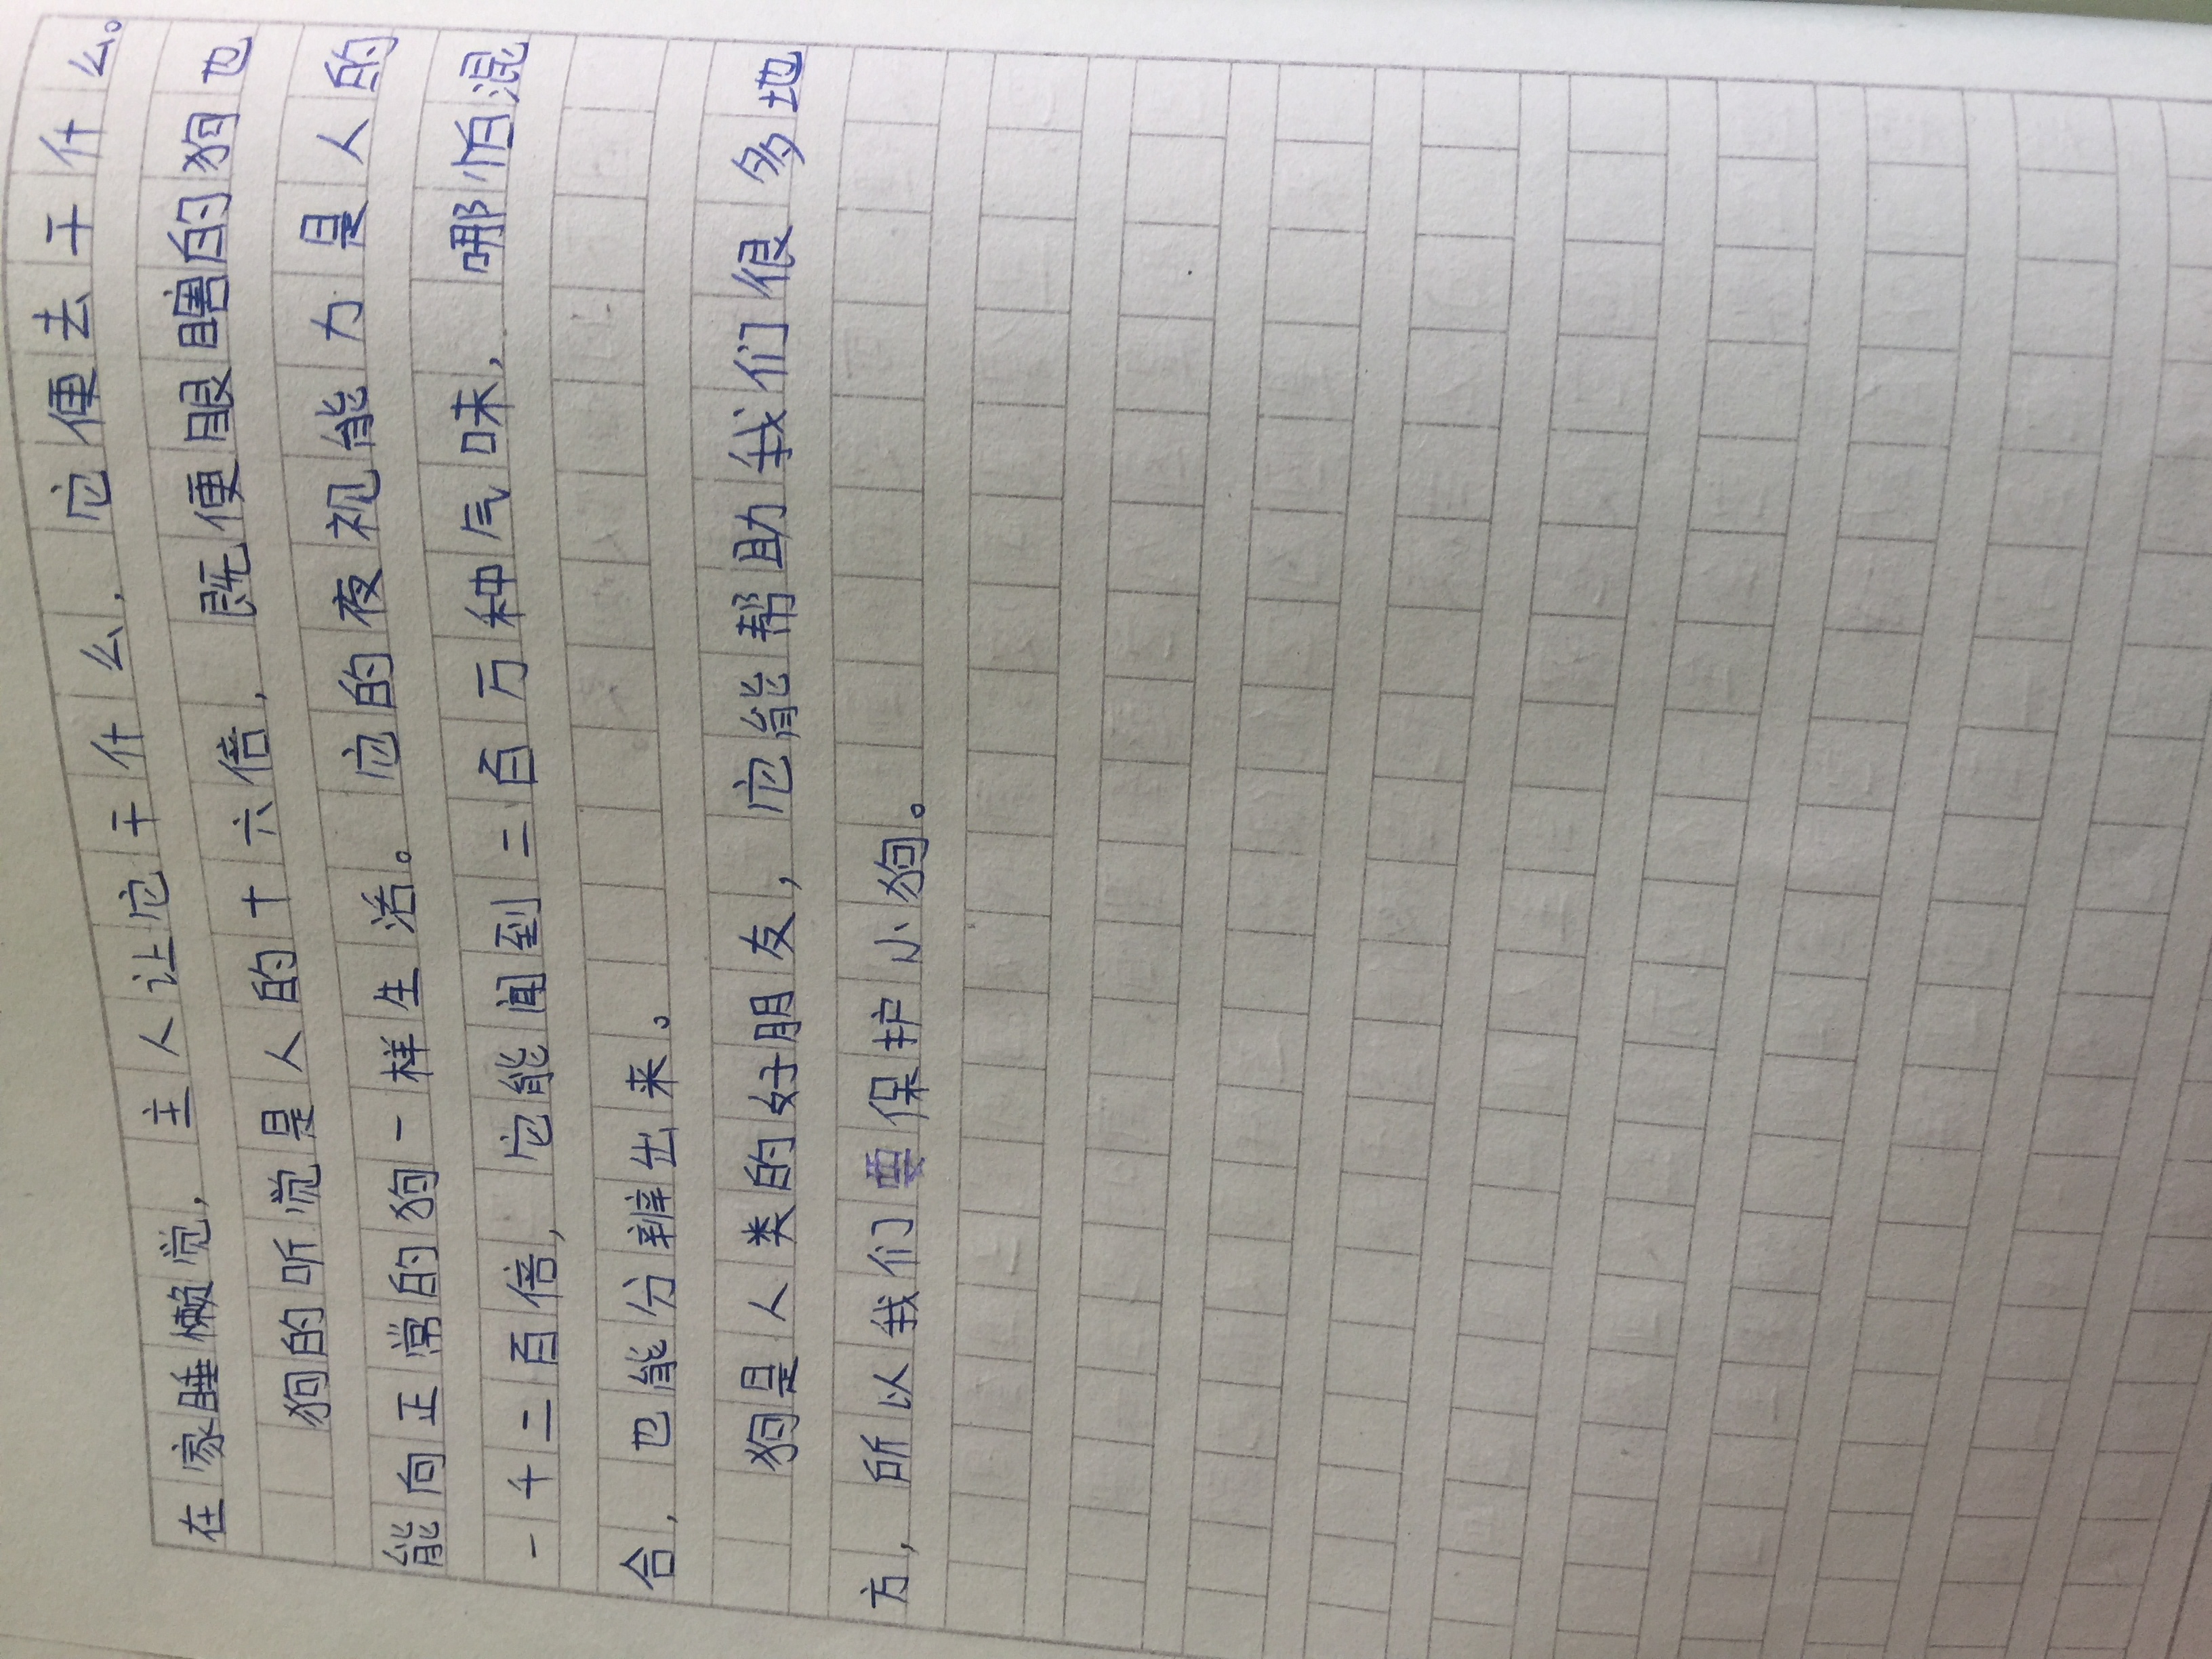 在家睡懒觉，主人让它干什么，它便去干什么。
狗的听觉是人的十六倍，既便眼瞎的狗也
能向正常的狗一样生活。它的夜视能力是人的
一千二百倍，它能闻到二百万种气味，哪怕混
合，也能分辨出来。
狗是人类的好朋友，它能帮助我们很多地
方，所以我们要保护小狗。